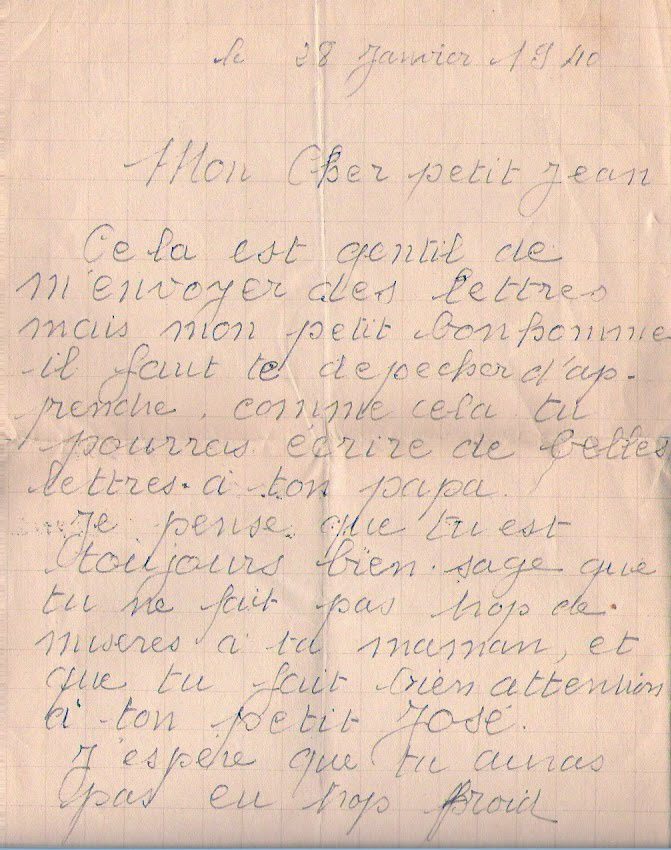 le 28 Janvier 1940
Mon Cher petit Jean
Cela est gentil de
m'envoyer des lettres
mais mon petit bonhomme
il faut te depecher d'ap-
prendre, comme cela tu
pourras ecrire de belles
lettres à ton papa.
Je pense que tu est
toujours bien sage que
tu ne fait pas trop de
miseres à ta maman, et
que tu fait bien attention
à ton petit José.
J'espère que tu auras
pas eu trop froid